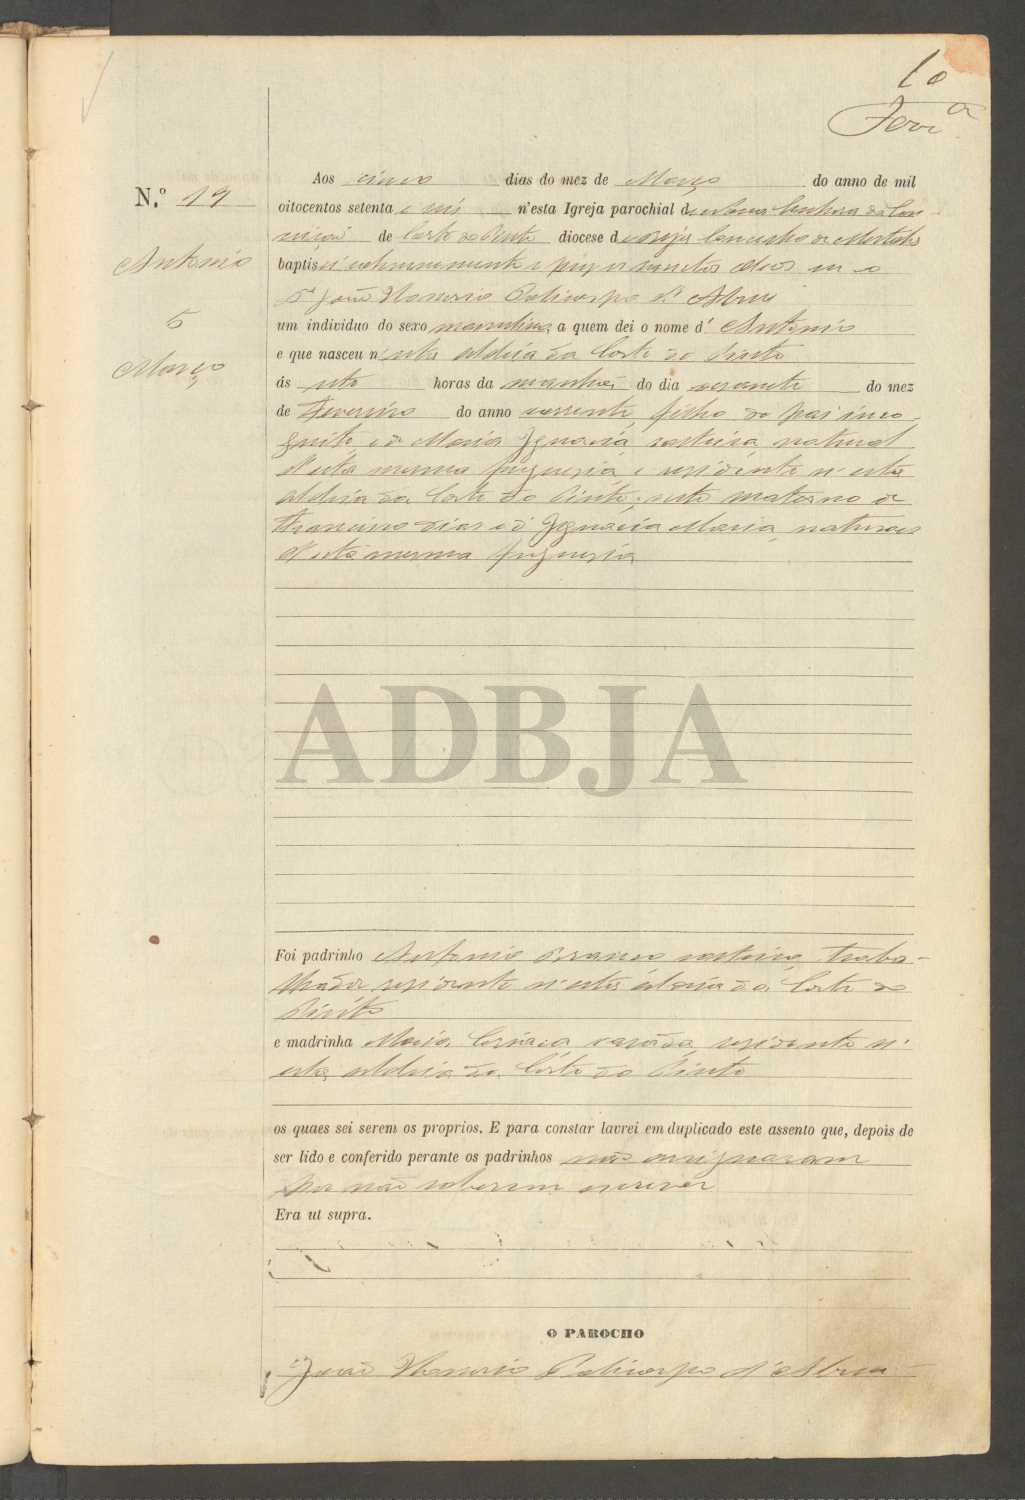 10
N.º 19
Aos cinco dias do mez de Março do anno de mil
oitocentos setenta e seis n'esta Igreja parochial de Nossa Senhora da Con-
ceiçaõ de Corte do Pinto diocese de Beja Concelho de Mertola
baptisei solemnemente e puz os sanctos oleos eu o
Pe João Honorio Policarpo d'Abreu
um individuo do sexo masculino, a quem dei o nome d' Antonio
e que nasceu n'esta aldeia da Corte do Pinto
ás horas da manhã do dia do mez
de Fevereiro do anno corrente, filho de pai inco-
gnito e de Maria Ignacia, solteira, natural
d'esta mesma freguesia, e residente n'esta
aldeia da Corte do Pinto; neto materno de
Dias e d' Ignacia Maria, naturaes
d'esta mesma freguesia
Antonio
5
Março
ADBJA
Foi padrinho Antonio solteiro, traba-
lhador residente n'esta aldeia da Corte do
Pinto
e madrinha Maria casada, residente n'
esta aldeia da Corte do Pinto
os quaes sei serem os proprios. E para constar lavrei em duplicado este assento que, depois de
ser lido e conferido perante os padrinhos não assignaram
por não saberem escrever
Era ut supra.
O PAROCHO
João Honorio Policarpo d'Abreu